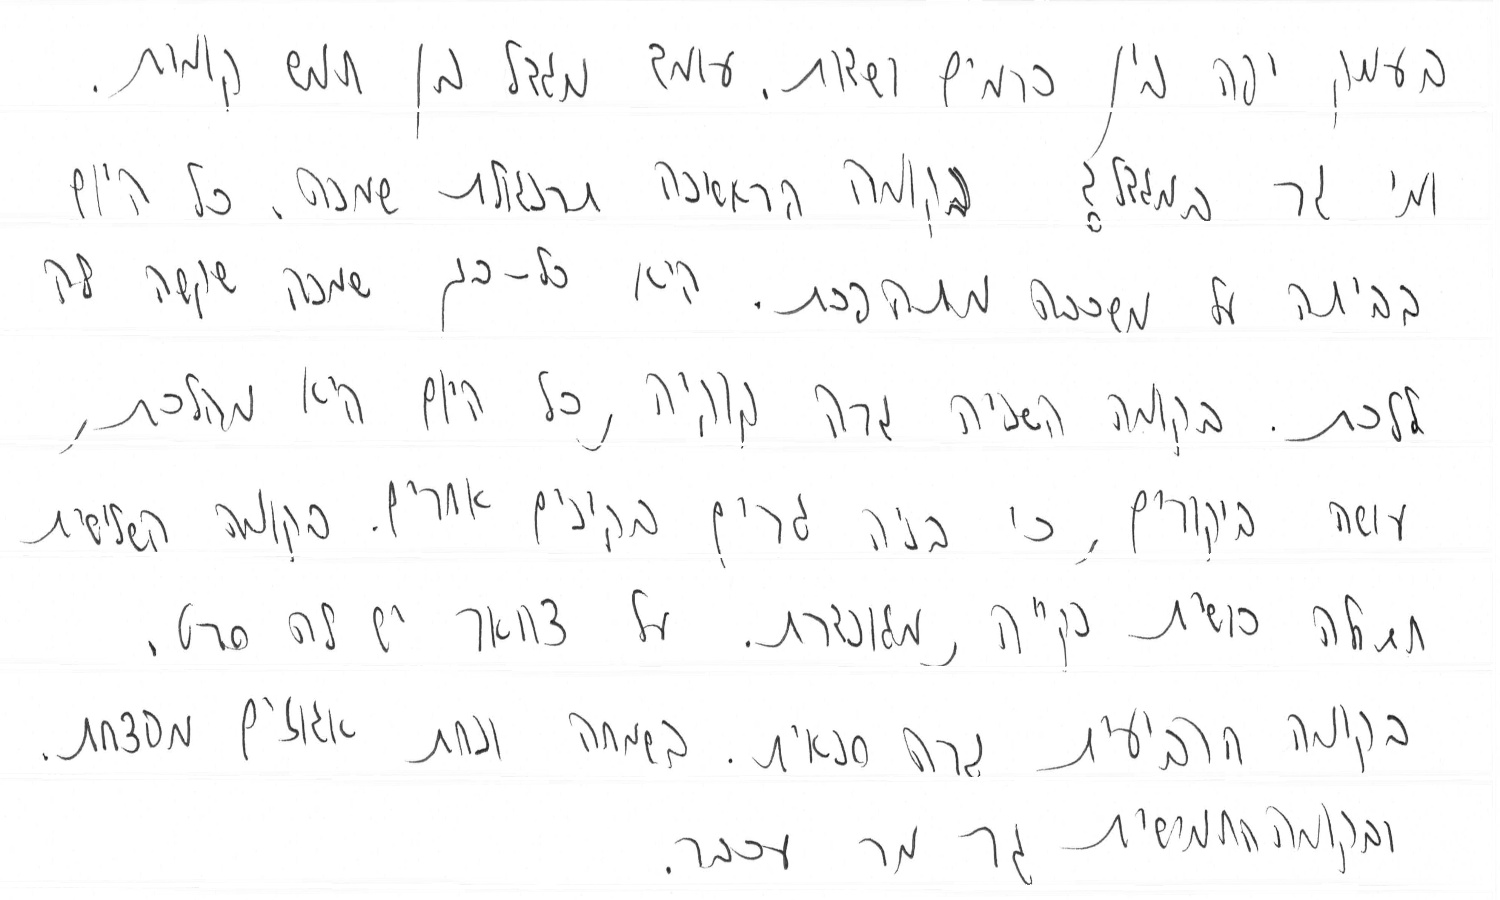 בעמק יפה בין כרמים ושדות. עומד מגדל בן חמש קומות.
ומי גר במגדל? בקומה הראשונה תרנגולת שמנה. כל היום
בביתה על משכבה מתהפכת. היא כל-כך שמנה שקשה לה
ללכת. בקומה השניה גרה קוקיה, כל היום היא מהלכת,
עושה ביקורים, כי בניה גרים בקינים אחרים. בקומה השלישית
חתולה כושית נקייה, מגונדרת. על צוואר יש לה סרט.
בקומה הרביעית גרה סנאית. בשמחה ונחת אגוזים מפצחת.
ובקומה החמישית גר מר עכבר.